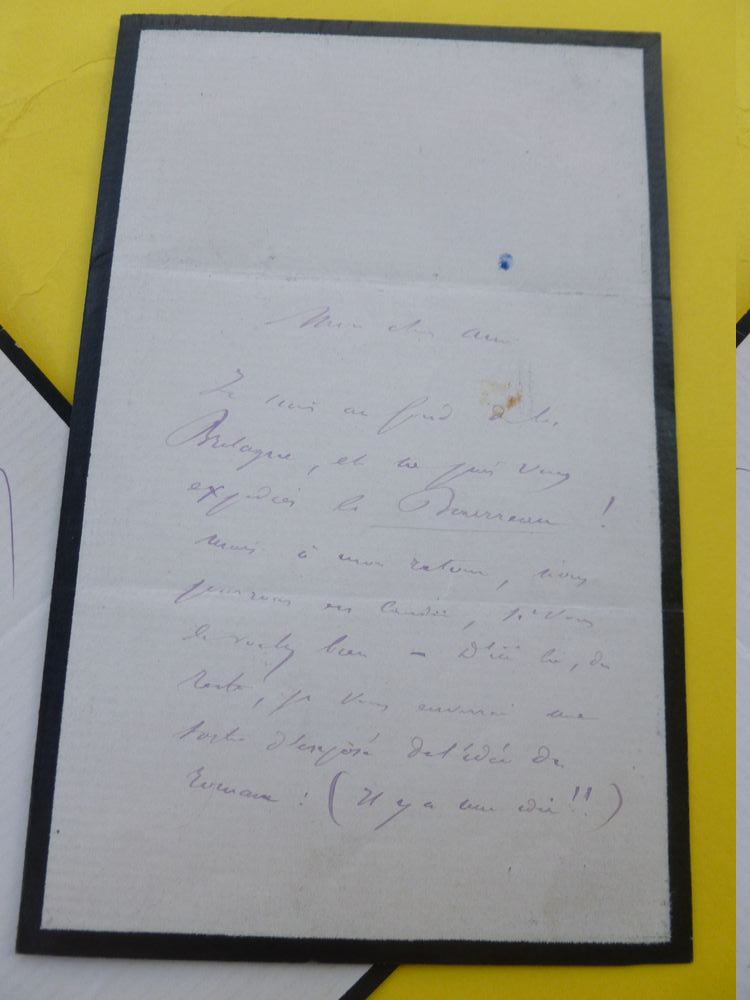 Mon cher ami
Je suis au fond de la
Bretagne, et ne puis vous
expédier le Bourreau !
mais à mon retour, nous
pourrons en causer, si vous
le voulez bien — D'ici là, du
reste, je vous enverrai une
sorte d'exposé de l'idée du
roman : (Il y a une idée !!)